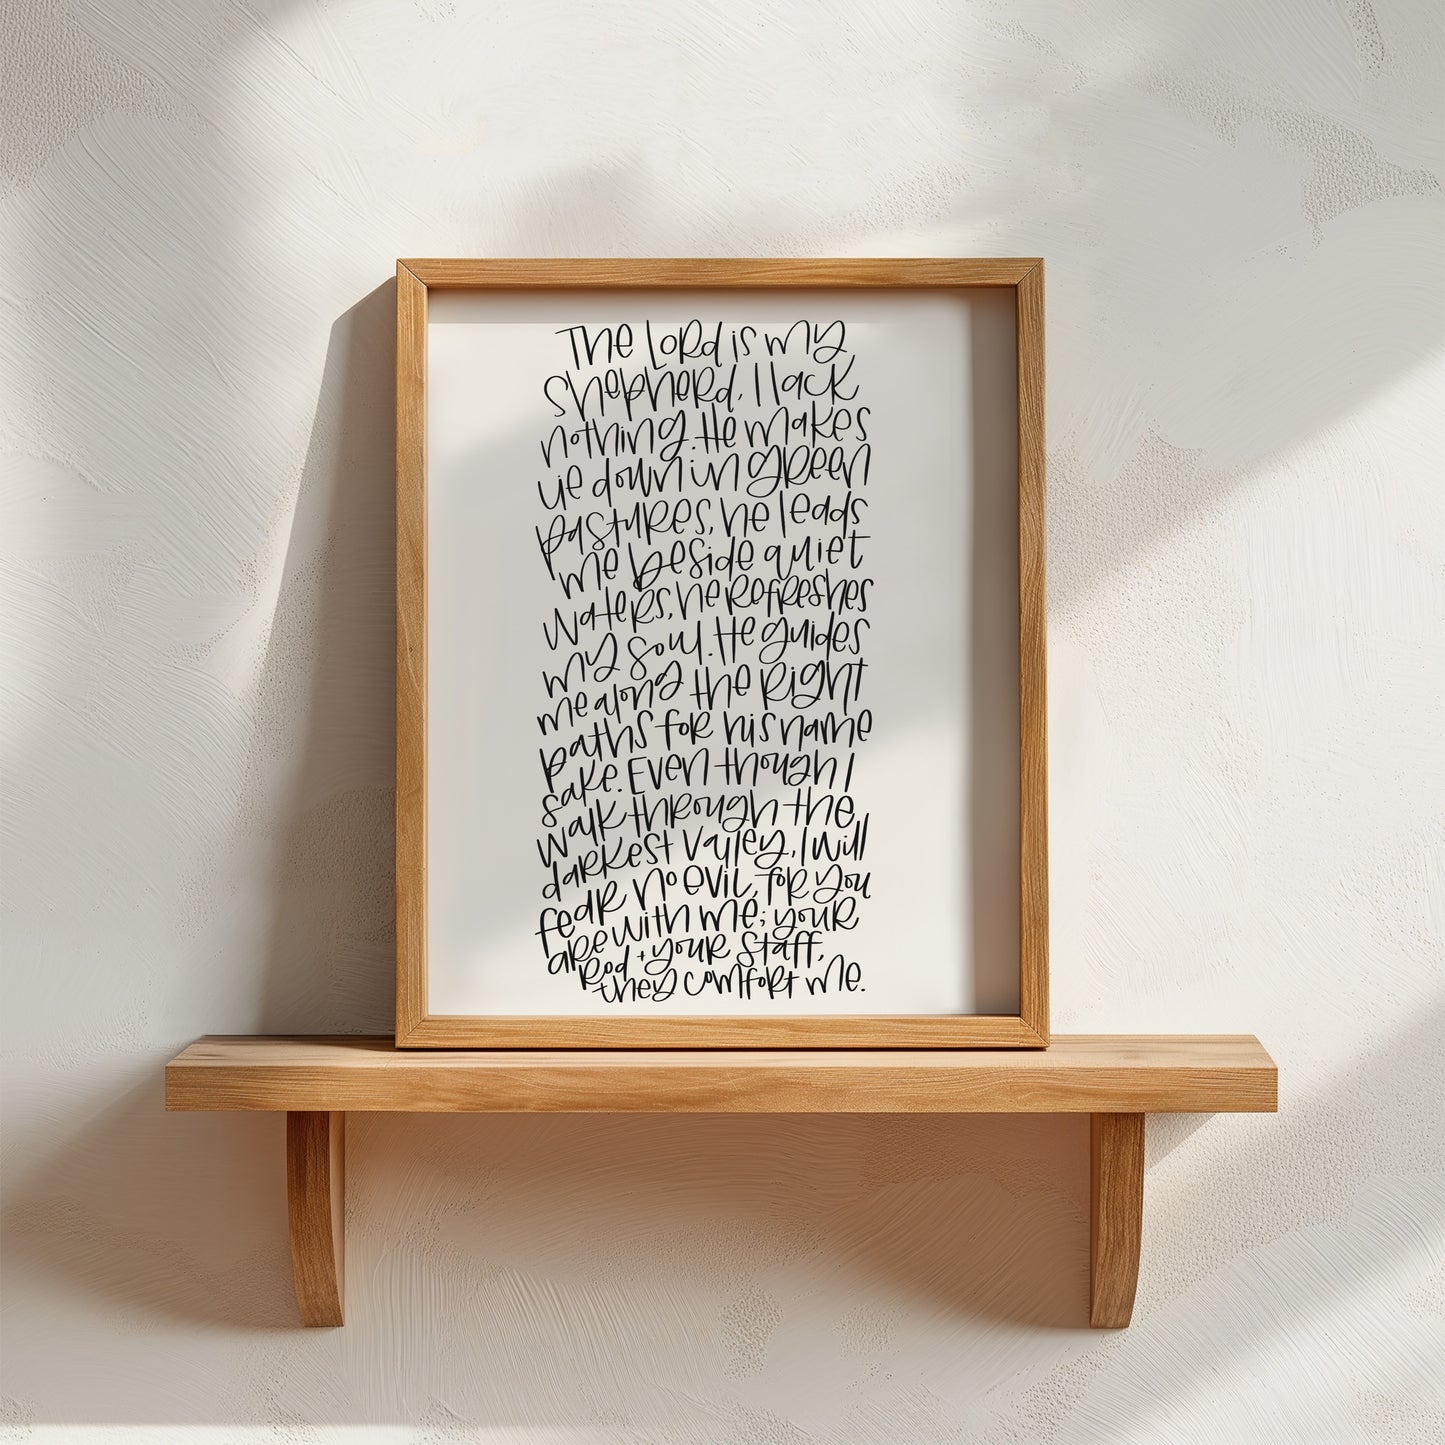 The Lord is my
shepherd, I lack
nothing. He makes
lie down in green
pastures, he leads
me beside quiet
waters, he refreshes
my soul. He guides
me along the right
paths for his name
sake. Even though I
walk through the
darkest valley, I will
fear no evil, for you
are with me; your
rod + your staff,
they comfort me.